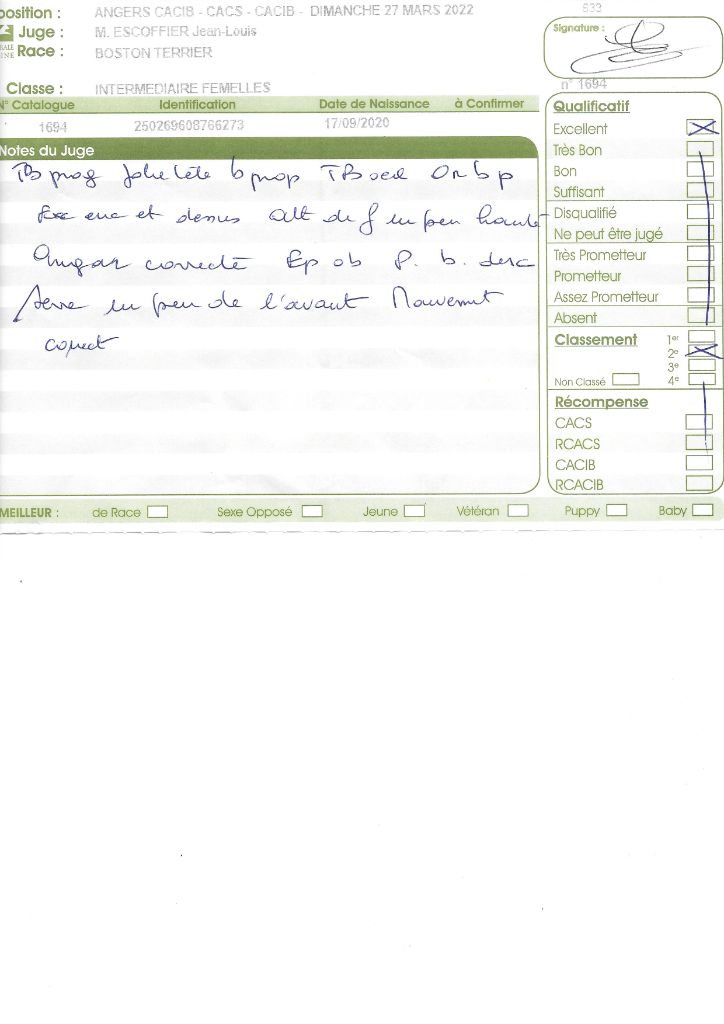 position : ANGERS CACIB - CACS - CACIB - DIMANCHE 27 MARS 2022
Juge : M. ESCOFFIER Jean-Louis
Race : BOSTON TERRIER
Classe : INTERMEDIAIRE FEMELLES
N° Catalogue Identification Date de Naissance à Confirmer
1694 250269608766273 17/09/2020
Notes du Juge
TB prog Jolie tête b prop TB oeil Or b p
Exc enc et dessus Att de f un peu haute
Angar correcte Ep ob P. b. desc
Serre un peu de l'avant Mouvement
correct
533
Signature :
n° 1694
Qualificatif
Excellent
Très Bon
Bon
Suffisant
Disqualifié
Ne peut être jugé
Très Prometteur
Prometteur
Assez Prometteur
Absent
Classement 1er
2e
3e
Non Classé 4e
Récompense
CACS
RCACS
CACIB
RCACIB
MEILLEUR : de Race Sexe Opposé Jeune Vétéran Puppy Baby